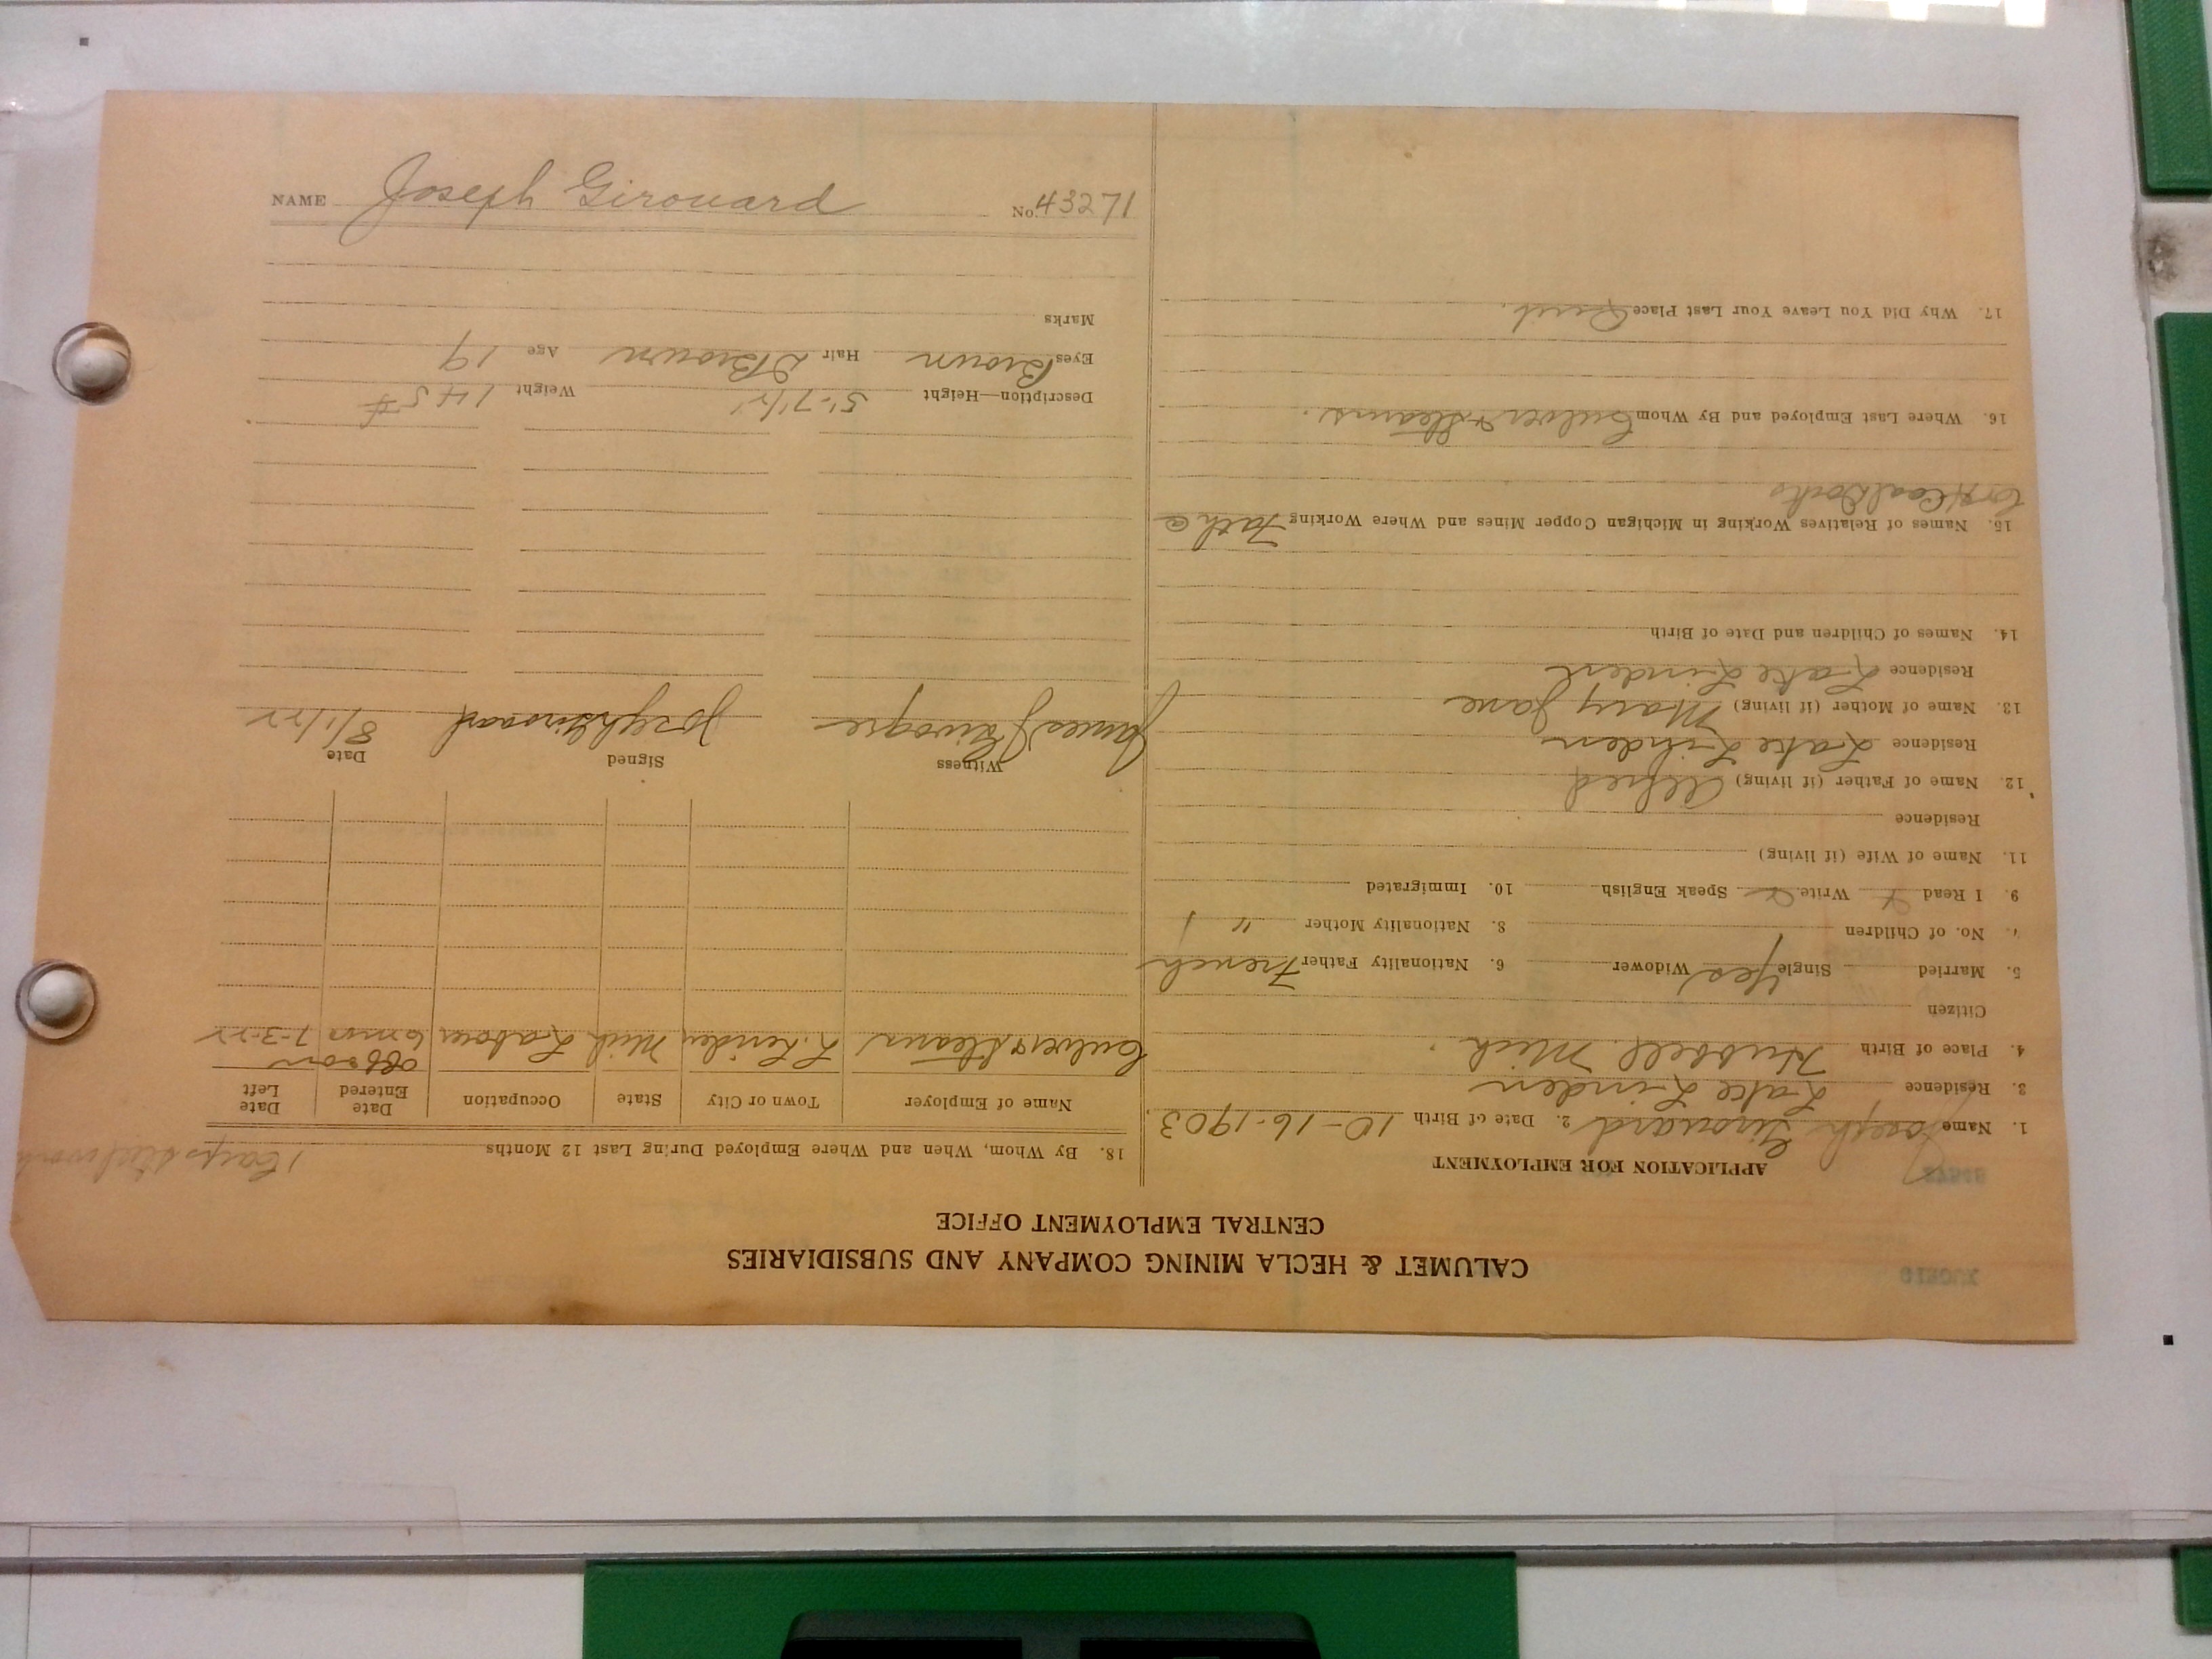 NAME Joseph Girouard No. 43271
CALUMET & HECLA MINING COMPANY AND SUBSIDIARIES
CENTRAL EMPLOYMENT OFFICE
APPLICATION FOR EMPLOYMENT
1. Name Joseph Girouard 2. Date of Birth 10-16-1903.
3. Residence Lake Linden
4. Place of Birth Hubbell Mich.
Citizen
5. Married Single Yes Widower 6. Nationality Father French
7. No. of Children 8. Nationality Mother "
9. I Read Write Speak English 10. Immigrated
11. Name of Wife (if living)
Residence
12. Name of Father (if living) Alfred
Residence Lake Linden
13. Name of Mother (if living) Mary Jane
Residence Lake Linden
14. Names of Children and Date of Birth
15. Names of Relatives Working in Michigan Copper Mines and Where Working Fath @
C & H Coal Docks
16. Where Last Employed and By Whom Culver & Stearns.
17. Why Did You Leave Your Last Place Quit.
18. By Whom, When and Where Employed During Last 12 Months
Name of Employer Town or City State Occupation Date Entered Date Left
Culver & Stearns L. Linden Mich Labour 6 mos 7-3-22
Witness Signed Date
James Joseph Girouard 8/1/22
Description—Height 5'-7 1/2" Weight 145#
Eyes Brown Hair D Brown Age 19
Marks